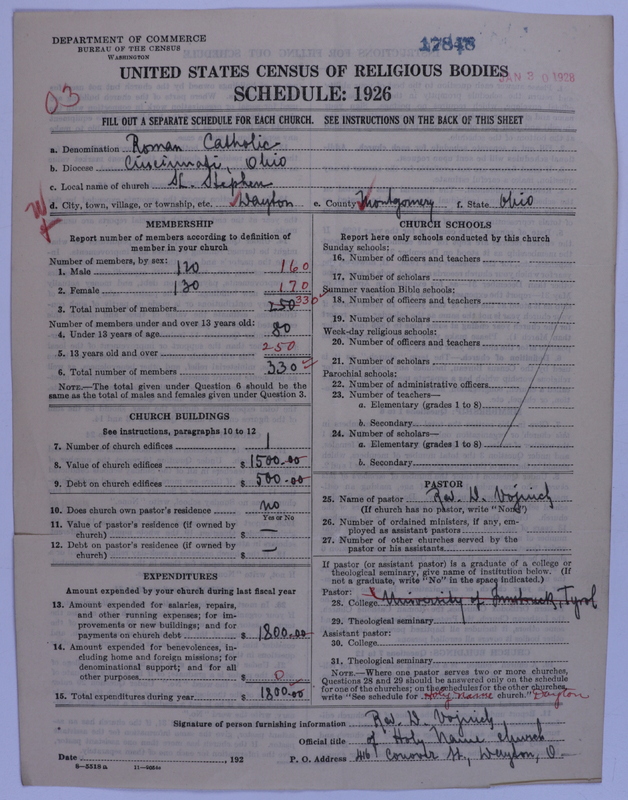 DEPARTMENT OF COMMERCE
BUREAU OF THE CENSUS
WASHINGTON
17848
JAN 30 1928
UNITED STATES CENSUS OF RELIGIOUS BODIES
SCHEDULE: 1926
03
FILL OUT A SEPARATE SCHEDULE FOR EACH CHURCH. SEE INSTRUCTIONS ON THE BACK OF THIS SHEET
a. Denomination Roman Catholic
b. Diocese Cincinnati, Ohio
c. Local name of church St. Stephen
d. City, town, village, or township, etc. Dayton e. County Montgomery f. State Ohio
MEMBERSHIP
Report number of members according to definition of
member in your church
Number of members, by sex:
1. Male 120 160
2. Female 130 170
3. Total number of members 250 330
Number of members under and over 13 years old:
4. Under 13 years of age 80
5. 13 years old and over 250
6. Total number of members 330
NOTE.—The total given under Question 6 should be the
same as the total of males and females given under Question 3.
CHURCH BUILDINGS
See instructions, paragraphs 10 to 12
7. Number of church edifices 1
8. Value of church edifices $1500.00
9. Debt on church edifices $500.00
10. Does church own pastor's residence no
Yes or No
11. Value of pastor's residence (if owned by
church) $ —
12. Debt on pastor's residence (if owned by
church) $ —
EXPENDITURES
Amount expended by your church during last fiscal year
13. Amount expended for salaries, repairs,
and other running expenses; for im-
provements or new buildings; and for
payments on church debt $1800.00
14. Amount expended for benevolences, in-
cluding home and foreign missions; for
denominational support; and for all
other purposes $ 0
15. Total expenditures during year $1800.00
CHURCH SCHOOLS
Report here only schools conducted by this church
Sunday schools:
16. Number of officers and teachers
17. Number of scholars
Summer vacation Bible schools:
18. Number of officers and teachers
19. Number of scholars
Week-day religious schools:
20. Number of officers and teachers
21. Number of scholars
Parochial schools:
22. Number of administrative officers
23. Number of teachers—
a. Elementary (grades 1 to 8)
b. Secondary
24. Number of scholars—
a. Elementary (grades 1 to 8)
b. Secondary
PASTOR
25. Name of pastor Rev. D. Vojnich
(If church has no pastor, write "None")
26. Number of ordained ministers, if any, em-
ployed as assistant pastors
27. Number of other churches served by the
pastor or his assistants
If pastor (or assistant pastor) is a graduate of a college or
theological seminary, give name of institution below. (If
not a graduate, write "No" in the space indicated.)
Pastor:
28. College University of Innsbruck, Tyrol
29. Theological seminary
Assistant pastor:
30. College
31. Theological seminary
NOTE.—Where one pastor serves two or more churches,
Questions 28 and 29 should be answered only on the schedule
for one of the churches; on the schedules for the other churches,
write "See schedule for Holy Name church." Dayton
Signature of person furnishing information Rev. D. Vojnich
Official title of Holy Name Church
Date , 192 P. O. Address 416 Conover St., Dayton, O.
8—5518 a